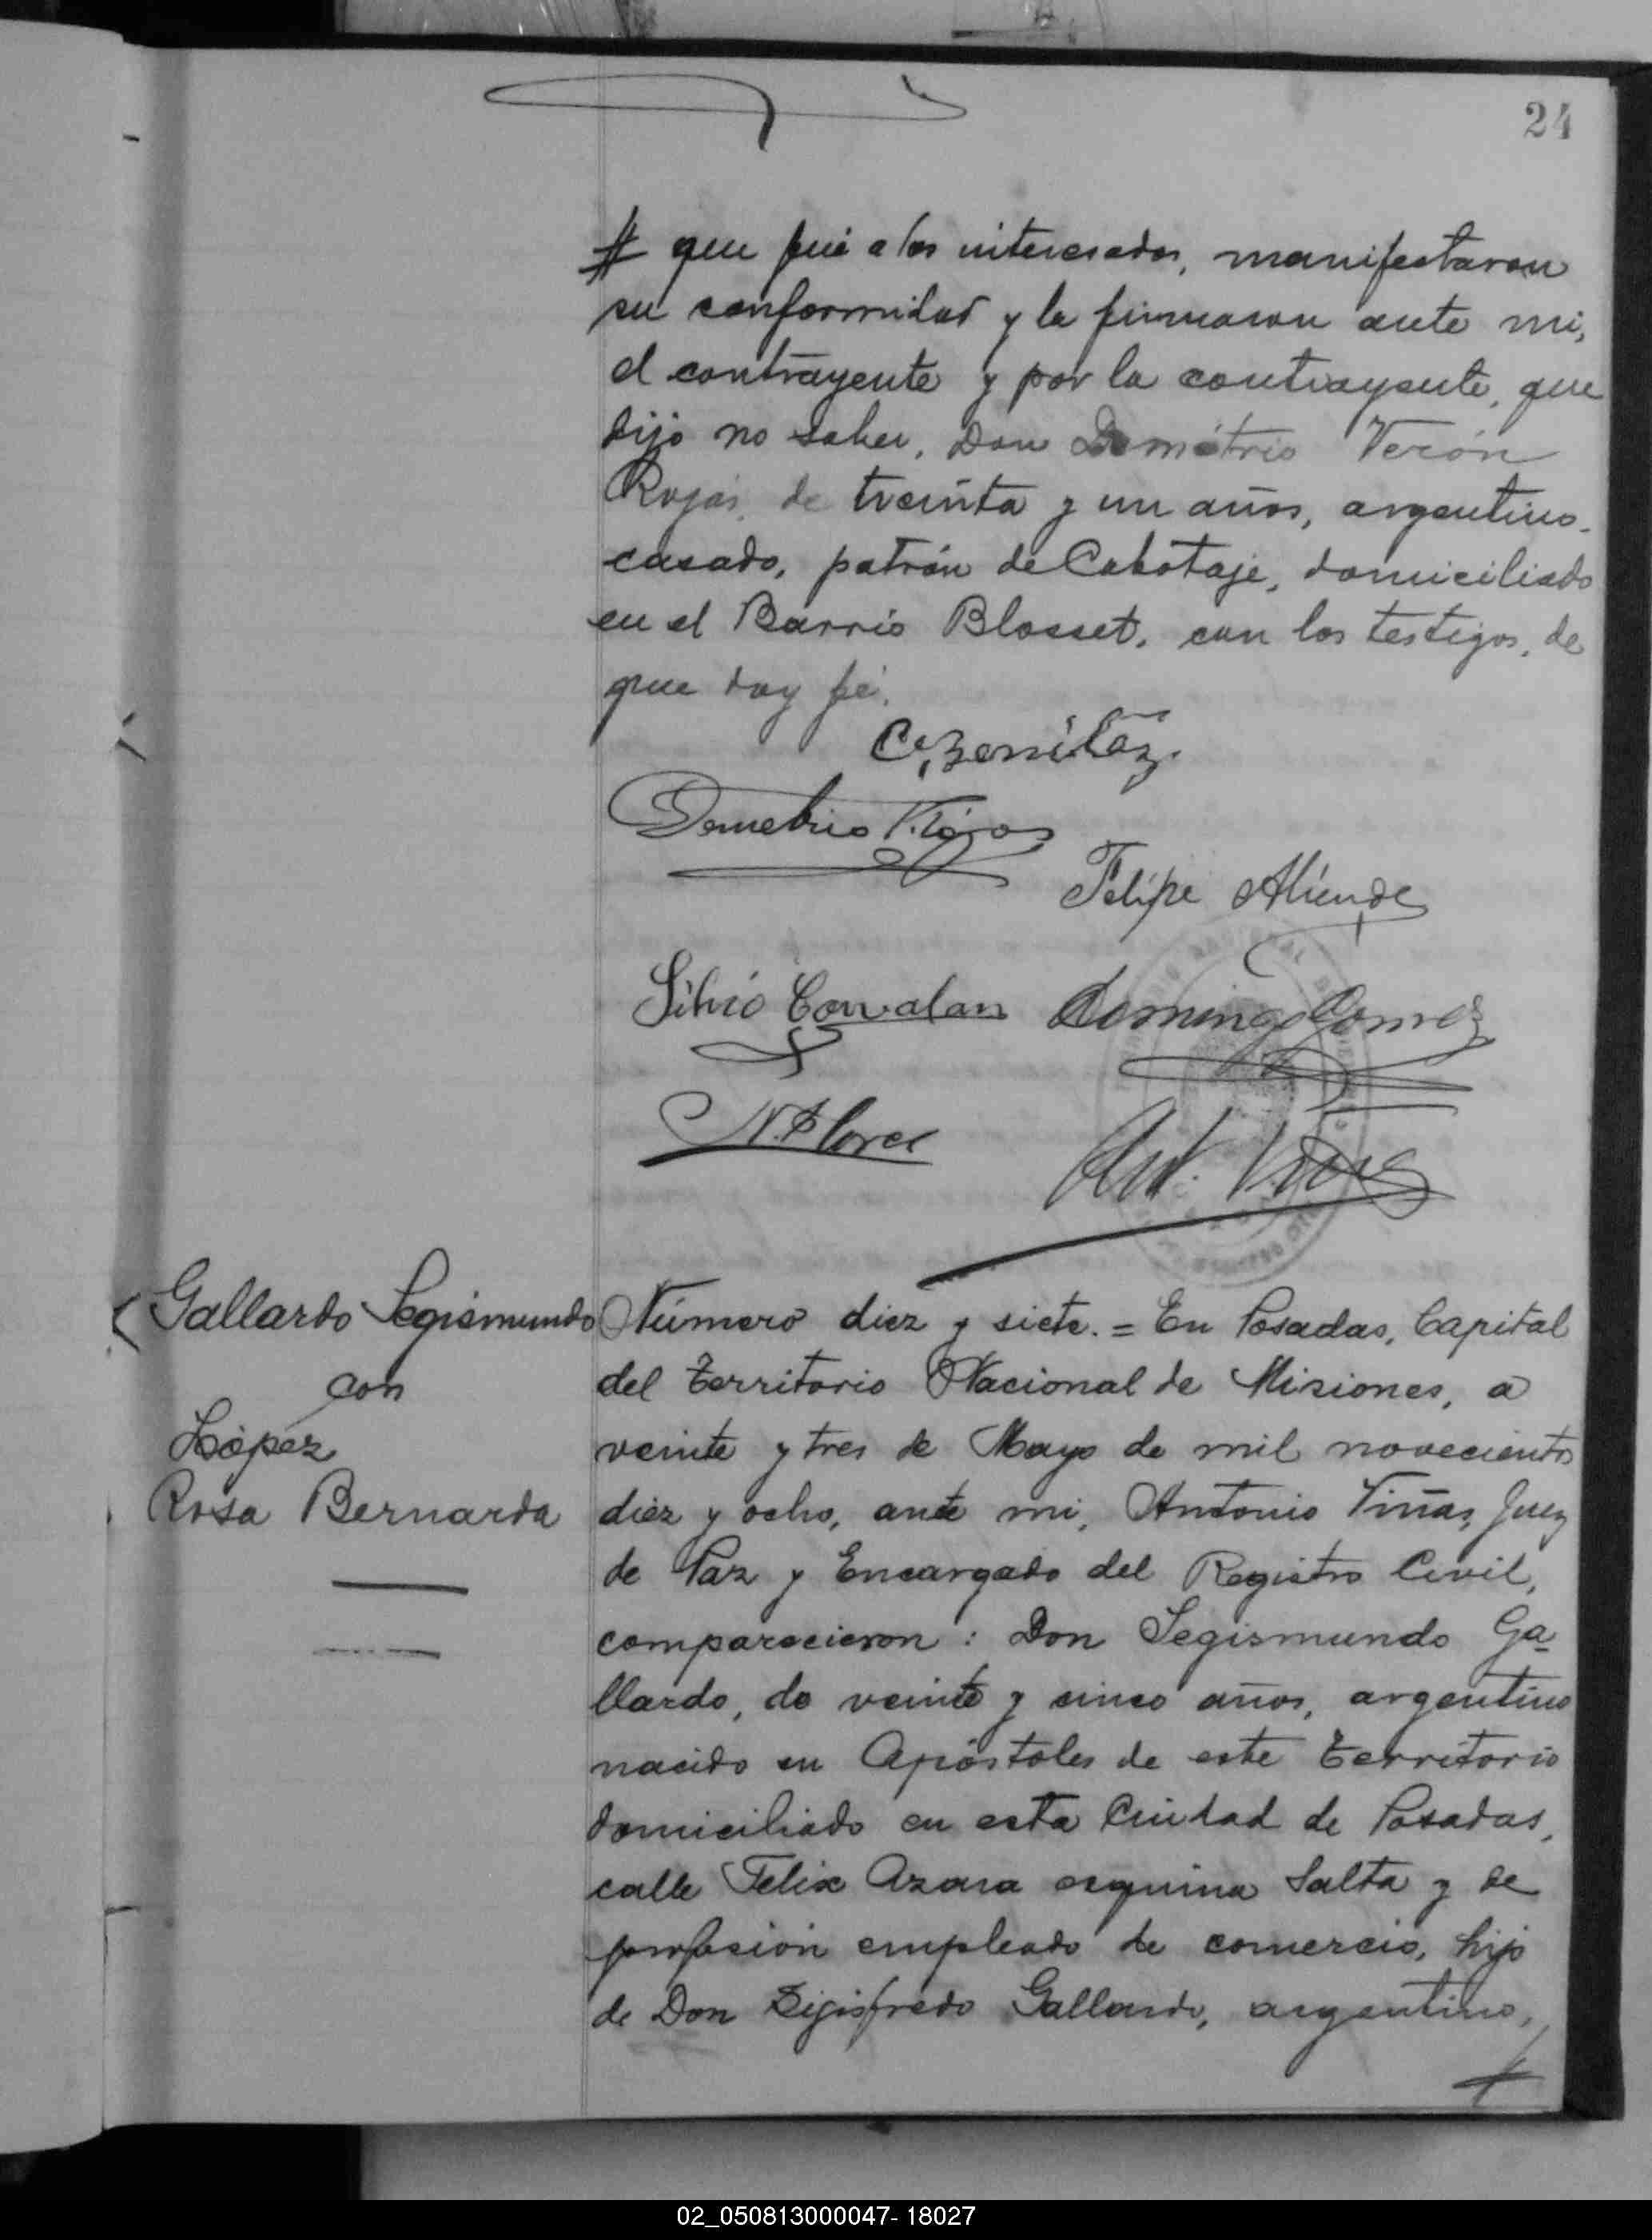 24
# que fué a los interesados, manifestaron
su conformidad y la firmaron ante mi,
el contrayente y por la contrayente, que
dijo no saber, Don Demétrio Verón
Rojas, de treinta y un años, argentino.
casado, patrón de Cabotaje, domiciliado
en el Barrio Blosset, con los testigos, de
que doy fé.
Demetrio V. Rojas
Felipe Aliende
Silvio Corvalan Domingo Gomez
N. Flores
Ant. Viñas
Gallardo Segismundo
con
López
Rosa Bernarda
Número diez y siete. = En Posadas, Capital
del Territorio Nacional de Misiones, a
veinte y tres de Mayo de mil novecientos
diez y ocho, ante mi, Antonio Viñas, Juez
de Paz y Encargado del Registro Civil,
comparecieron: Don Segismundo Ga-
llardo, de veinte y cinco años, argentino
nacido en Apóstoles de este Territorio
domiciliado en esta Ciudad de Posadas,
calle Felix Azara esquina Salta y de
profesión empleado de comercio, hijo
de Don Sigisfredo Gallardo, argentino,
02_050813000047- 18027